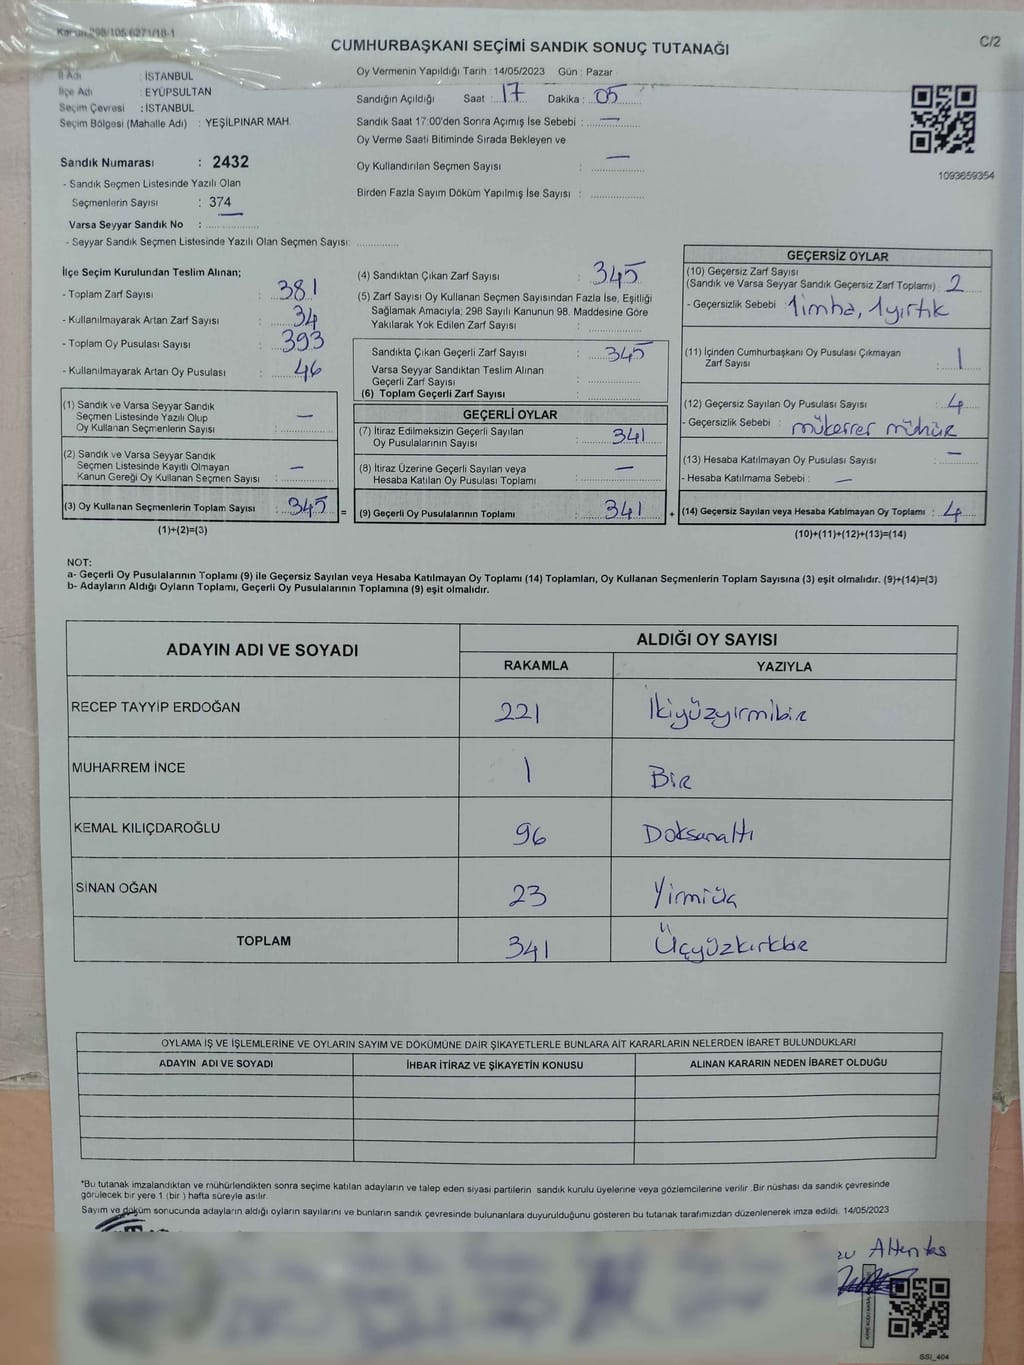 Kanun 298/105,6271/18-1
CUMHURBAŞKANI SEÇİMİ SANDIK SONUÇ TUTANAĞI
C/2
İl Adı : İSTANBUL
İlçe Adı : EYÜPSULTAN
Seçim Çevresi : İSTANBUL
Seçim Bölgesi (Mahalle Adı) : YEŞİLPINAR MAH.
Sandık Numarası : 2432
- Sandık Seçmen Listesinde Yazılı Olan
Seçmenlerin Sayısı : 374
Varsa Seyyar Sandık No : ..............
- Seyyar Sandık Seçmen Listesinde Yazılı Olan Seçmen Sayısı: ............
Oy Vermenin Yapıldığı Tarih : 14/05/2023 Gün : Pazar
Sandığın Açıldığı Saat : 17 Dakika : 05
Sandık Saat 17:00'den Sonra Açımış İse Sebebi : —
Oy Verme Saati Bitiminde Sırada Bekleyen ve
Oy Kullandırılan Seçmen Sayısı : —
Birden Fazla Sayım Döküm Yapılmış İse Sayısı : ..............
1093659354
İlçe Seçim Kurulundan Teslim Alınan;
- Toplam Zarf Sayısı : 381
- Kullanılmayarak Artan Zarf Sayısı : 34
- Toplam Oy Pusulası Sayısı : 393
- Kullanılmayarak Artan Oy Pusulası : 46
(1) Sandık ve Varsa Seyyar Sandık
Seçmen Listesinde Yazılı Olup
Oy Kullanan Seçmenlerin Sayısı : —
(2) Sandık ve Varsa Seyyar Sandık
Seçmen Listesinde Kayıtlı Olmayan
Kanun Gereği Oy Kullanan Seçmen Sayısı : —
(3) Oy Kullanan Seçmenlerin Toplam Sayısı : 345 =
(1)+(2)=(3)
(4) Sandıktan Çıkan Zarf Sayısı : 345
(5) Zarf Sayısı Oy Kullanan Seçmen Sayısından Fazla İse, Eşitliği
Sağlamak Amacıyla; 298 Sayılı Kanunun 98. Maddesine Göre
Yakılarak Yok Edilen Zarf Sayısı : ..............
Sandıkta Çıkan Geçerli Zarf Sayısı : 345
Varsa Seyyar Sandıktan Teslim Alınan
Geçerli Zarf Sayısı : ..............
(6) Toplam Geçerli Zarf Sayısı : ..............
GEÇERLİ OYLAR
(7) İtiraz Edilmeksizin Geçerli Sayılan
Oy Pusulalarının Sayısı : 341
(8) İtiraz Üzerine Geçerli Sayılan veya
Hesaba Katılan Oy Pusulası Toplamı : —
(9) Geçerli Oy Pusulalarının Toplamı : 341 +
GEÇERSİZ OYLAR
(10) Geçersiz Zarf Sayısı
(Sandık ve Varsa Seyyar Sandık Geçersiz Zarf Toplamı) : 2
- Geçersizlik Sebebi : 1 imha, 1 yırtık
(11) İçinden Cumhurbaşkanı Oy Pusulası Çıkmayan
Zarf Sayısı : 1
(12) Geçersiz Sayılan Oy Pusulası Sayısı : 4
- Geçersizlik Sebebi : mükerrer mühür
(13) Hesaba Katılmayan Oy Pusulası Sayısı : —
- Hesaba Katılmama Sebebi : —
(14) Geçersiz Sayılan veya Hesaba Katılmayan Oy Toplamı : 4
(10)+(11)+(12)+(13)=(14)
NOT:
a- Geçerli Oy Pusulalarının Toplamı (9) ile Geçersiz Sayılan veya Hesaba Katılmayan Oy Toplamı (14) Toplamları, Oy Kullanan Seçmenlerin Toplam Sayısına (3) eşit olmalıdır. (9)+(14)=(3)
b- Adayların Aldığı Oyların Toplamı, Geçerli Oy Pusulalarının Toplamına (9) eşit olmalıdır.
ADAYIN ADI VE SOYADI
ALDIĞI OY SAYISI
RAKAMLA YAZIYLA
RECEP TAYYİP ERDOĞAN 221 İkiyüzyirmibir
MUHARREM İNCE 1 Bir
KEMAL KILIÇDAROĞLU 96 Doksanaltı
SİNAN OĞAN 23 Yirmiüç
TOPLAM 341 Üçyüzkırkbir
OYLAMA İŞ VE İŞLEMLERİNE VE OYLARIN SAYIM VE DÖKÜMÜNE DAİR ŞİKAYETLERLE BUNLARA AİT KARARLARIN NELERDEN İBARET BULUNDUKLARI
ADAYIN ADI VE SOYADI İHBAR İTİRAZ VE ŞİKAYETİN KONUSU ALINAN KARARIN NEDEN İBARET OLDUĞU
*Bu tutanak imzalandıktan ve mühürlendikten sonra seçime katılan adayların ve talep eden siyasi partilerin sandık kurulu üyelerine veya gözlemcilerine verilir .Bir nüshası da sandık çevresinde
görülecek bir yere 1 (bir ) hafta süreyle asılır.
Sayım ve döküm sonucunda adayların aldığı oyların sayılarını ve bunların sandık çevresinde bulunanlara duyurulduğunu gösteren bu tutanak tarafımızdan düzenlenerek imza edildi. 14/05/2023
SSI_404